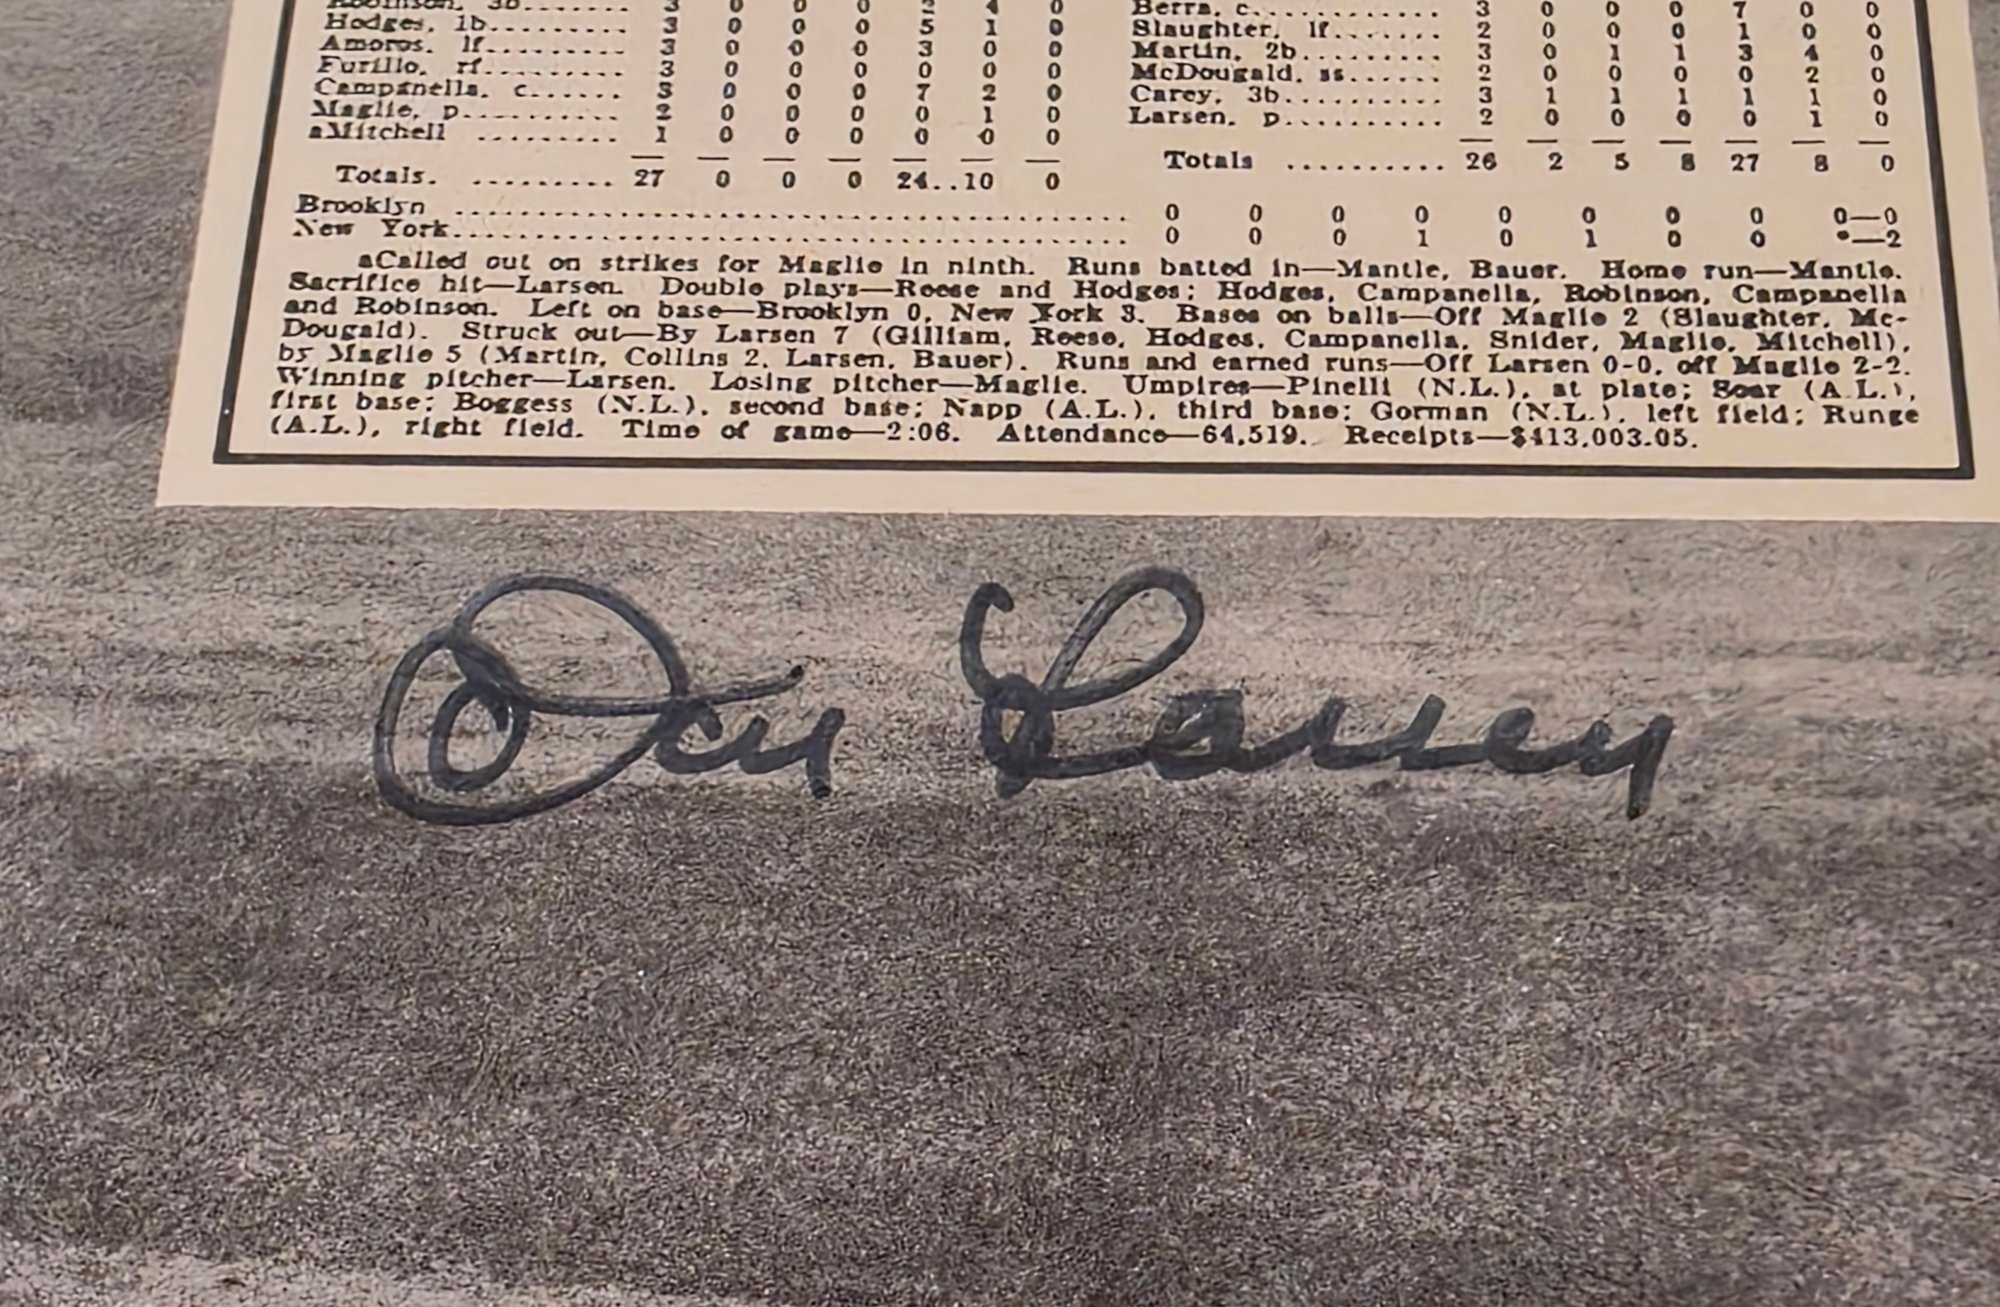 Robinson, 3b....... 3 0 0 0 2 4 0
Hodges, 1b......... 3 0 0 0 5 1 0
Amoros, lf......... 3 0 0 0 3 0 0
Furillo, rf......... 3 0 0 0 0 0 0
Campanella, c...... 3 0 0 0 7 2 0
Maglie, p.......... 2 0 0 0 0 1 0
aMitchell ......... 1 0 0 0 0 0 0
Totals. ......... 27 0 0 0 24..10 0
Berra, c............ 3 0 0 0 7 0 0
Slaughter, lf....... 2 0 0 0 1 0 0
Martin, 2b......... 3 0 1 1 3 4 0
McDougald, ss...... 2 0 0 0 0 2 0
Carey, 3b.......... 3 1 1 1 1 1 0
Larsen, p.......... 2 0 0 0 0 1 0
Totals .......... 26 2 5 8 27 8 0
Brooklyn .......................... 0 0 0 0 0 0 0 0 0—0
New York.......................... 0 0 0 1 0 1 0 0 *—2
aCalled out on strikes for Maglie in ninth. Runs batted in—Mantle, Bauer. Home run—Mantle.
Sacrifice hit—Larsen. Double plays—Reese and Hodges; Hodges, Campanella, Robinson, Campanella
and Robinson. Left on base—Brooklyn 0, New York 3. Bases on balls—Off Maglie 2 (Slaughter, Mc-
Dougald). Struck out—By Larsen 7 (Gilliam, Reese, Hodges, Campanella, Snider, Maglie, Mitchell),
by Maglie 5 (Martin, Collins 2, Larsen, Bauer). Runs and earned runs—Off Larsen 0-0, off Maglie 2-2.
Winning pitcher—Larsen. Losing pitcher—Maglie. Umpires—Pinelli (N.L.), at plate; Soar (A.L.),
first base; Boggess (N.L.), second base; Napp (A.L.), third base; Gorman (N.L.), left field; Runge
(A.L.), right field. Time of game—2:06. Attendance—64,519. Receipts—$413,003.05.
Don Larsen